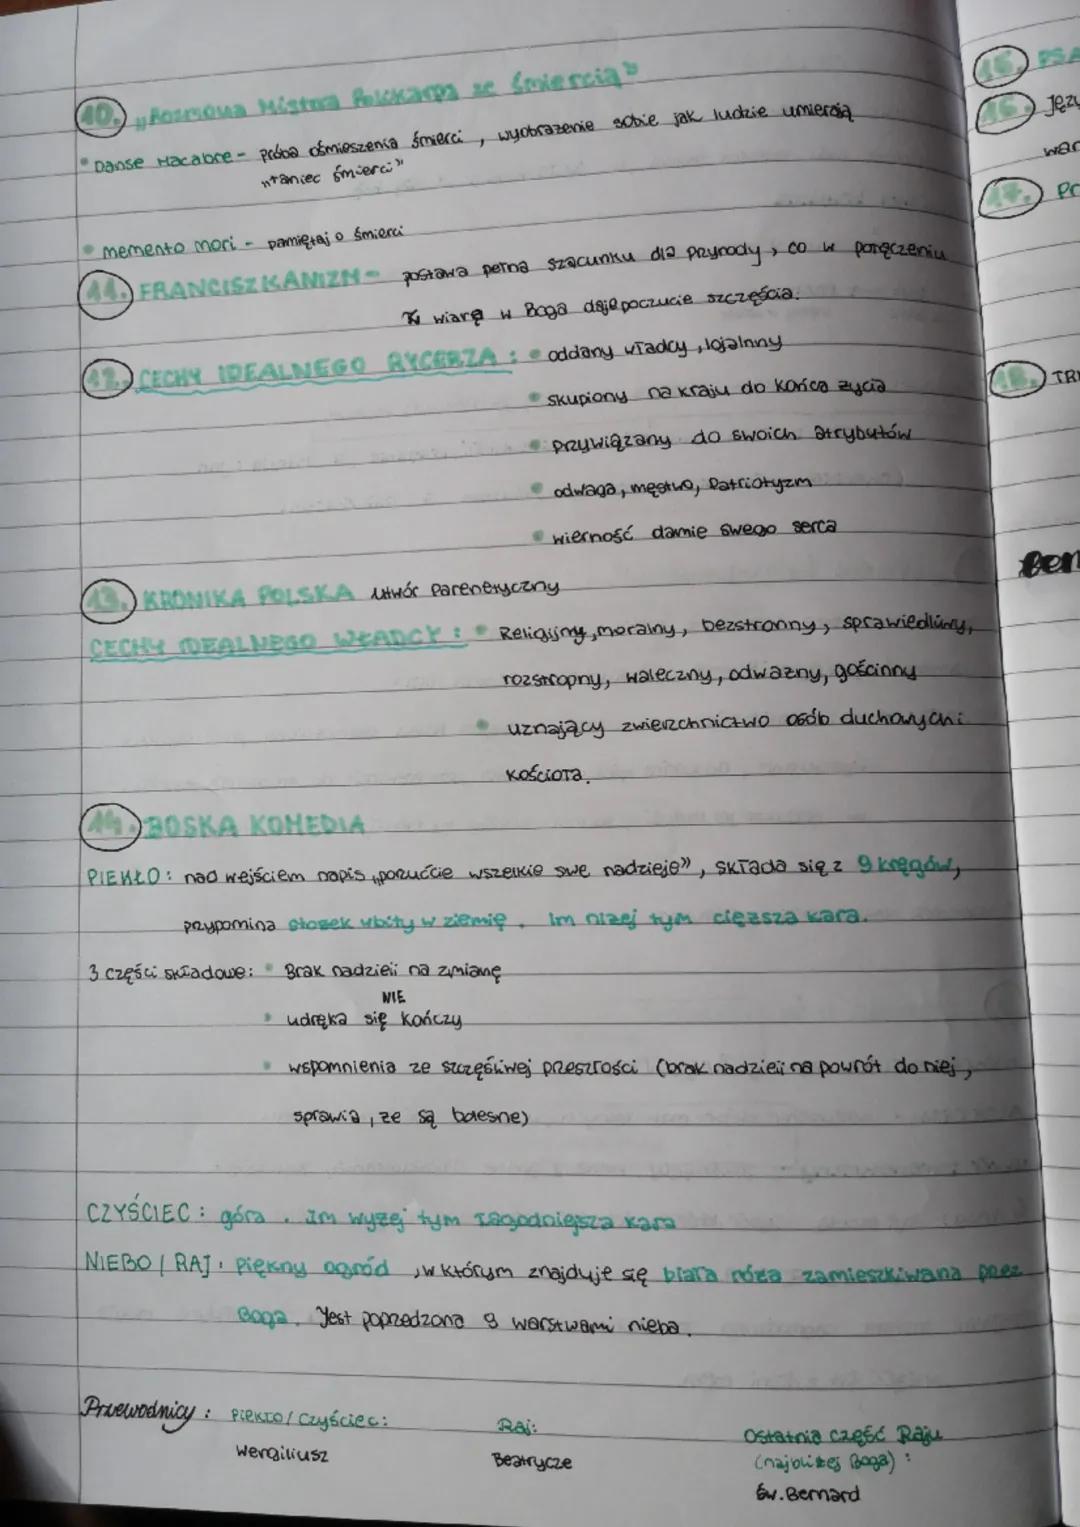 10. „Rozmowa Mistrza Polikarpa ze śmiercią"
Danse Macabre - próba ośmieszenia śmierci, wyobrażenie sobie jak ludzie umierają
„taniec śmierci"
memento mori - pamiętaj o śmierci
11. FRANCISZKANIZM - postawa pełna szacunku dla przyrody, co w połączeniu
wiarę w Boga daje poczucie szczęścia.
12. CECHY IDEALNEGO RYCERZA: oddany władcy, lojalnny
skupiony na kraju do końca życia
przywiązany do swoich atrybutów
odwaga, męstwo, patriotyzm
wierność damie swego serca
13. KRONIKA POLSKA utwór parenetyczny
CECHY IDEALNEGO WŁADCY: Religijny, moralny, bezstronny, sprawiedliwy,
rozstropny, waleczny, odważny, gościnny
uznający zwierzchnictwo osób duchownych i
kościoła.
14. BOSKA KOMEDIA
PIEKŁO: nad wejściem napis „porzućcie wszelkie swe nadzieje", składa się z 9 kręgów,
przypomina stożek wbity w ziemię. Im niżej tym cięższa kara.
3 części składowe: Brak nadzieii na zmianę
NIE
udręka się kończy
wspomnienia ze szczęśliwej przeszłości (brak nadzieii na powrót do niej,
sprawia, że są bolesne)
CZYŚCIEC: góra. Im wyżej tym łagodniejsza kara
NIEBO / RAJ: Piękny ogród, w którym znajduje się biała róża zamieszkiwana przez
Boga. Jest poprzedzona 9 warstwami nieba.
Przewodnicy: Piekło / Czyściec: Raj: Ostatnia część Raju
(najbliżej Boga):
Wergiliusz Beatrycze św. Bernard
15. PSA
16. Języ
war
17. Pr
18. TR
Ber